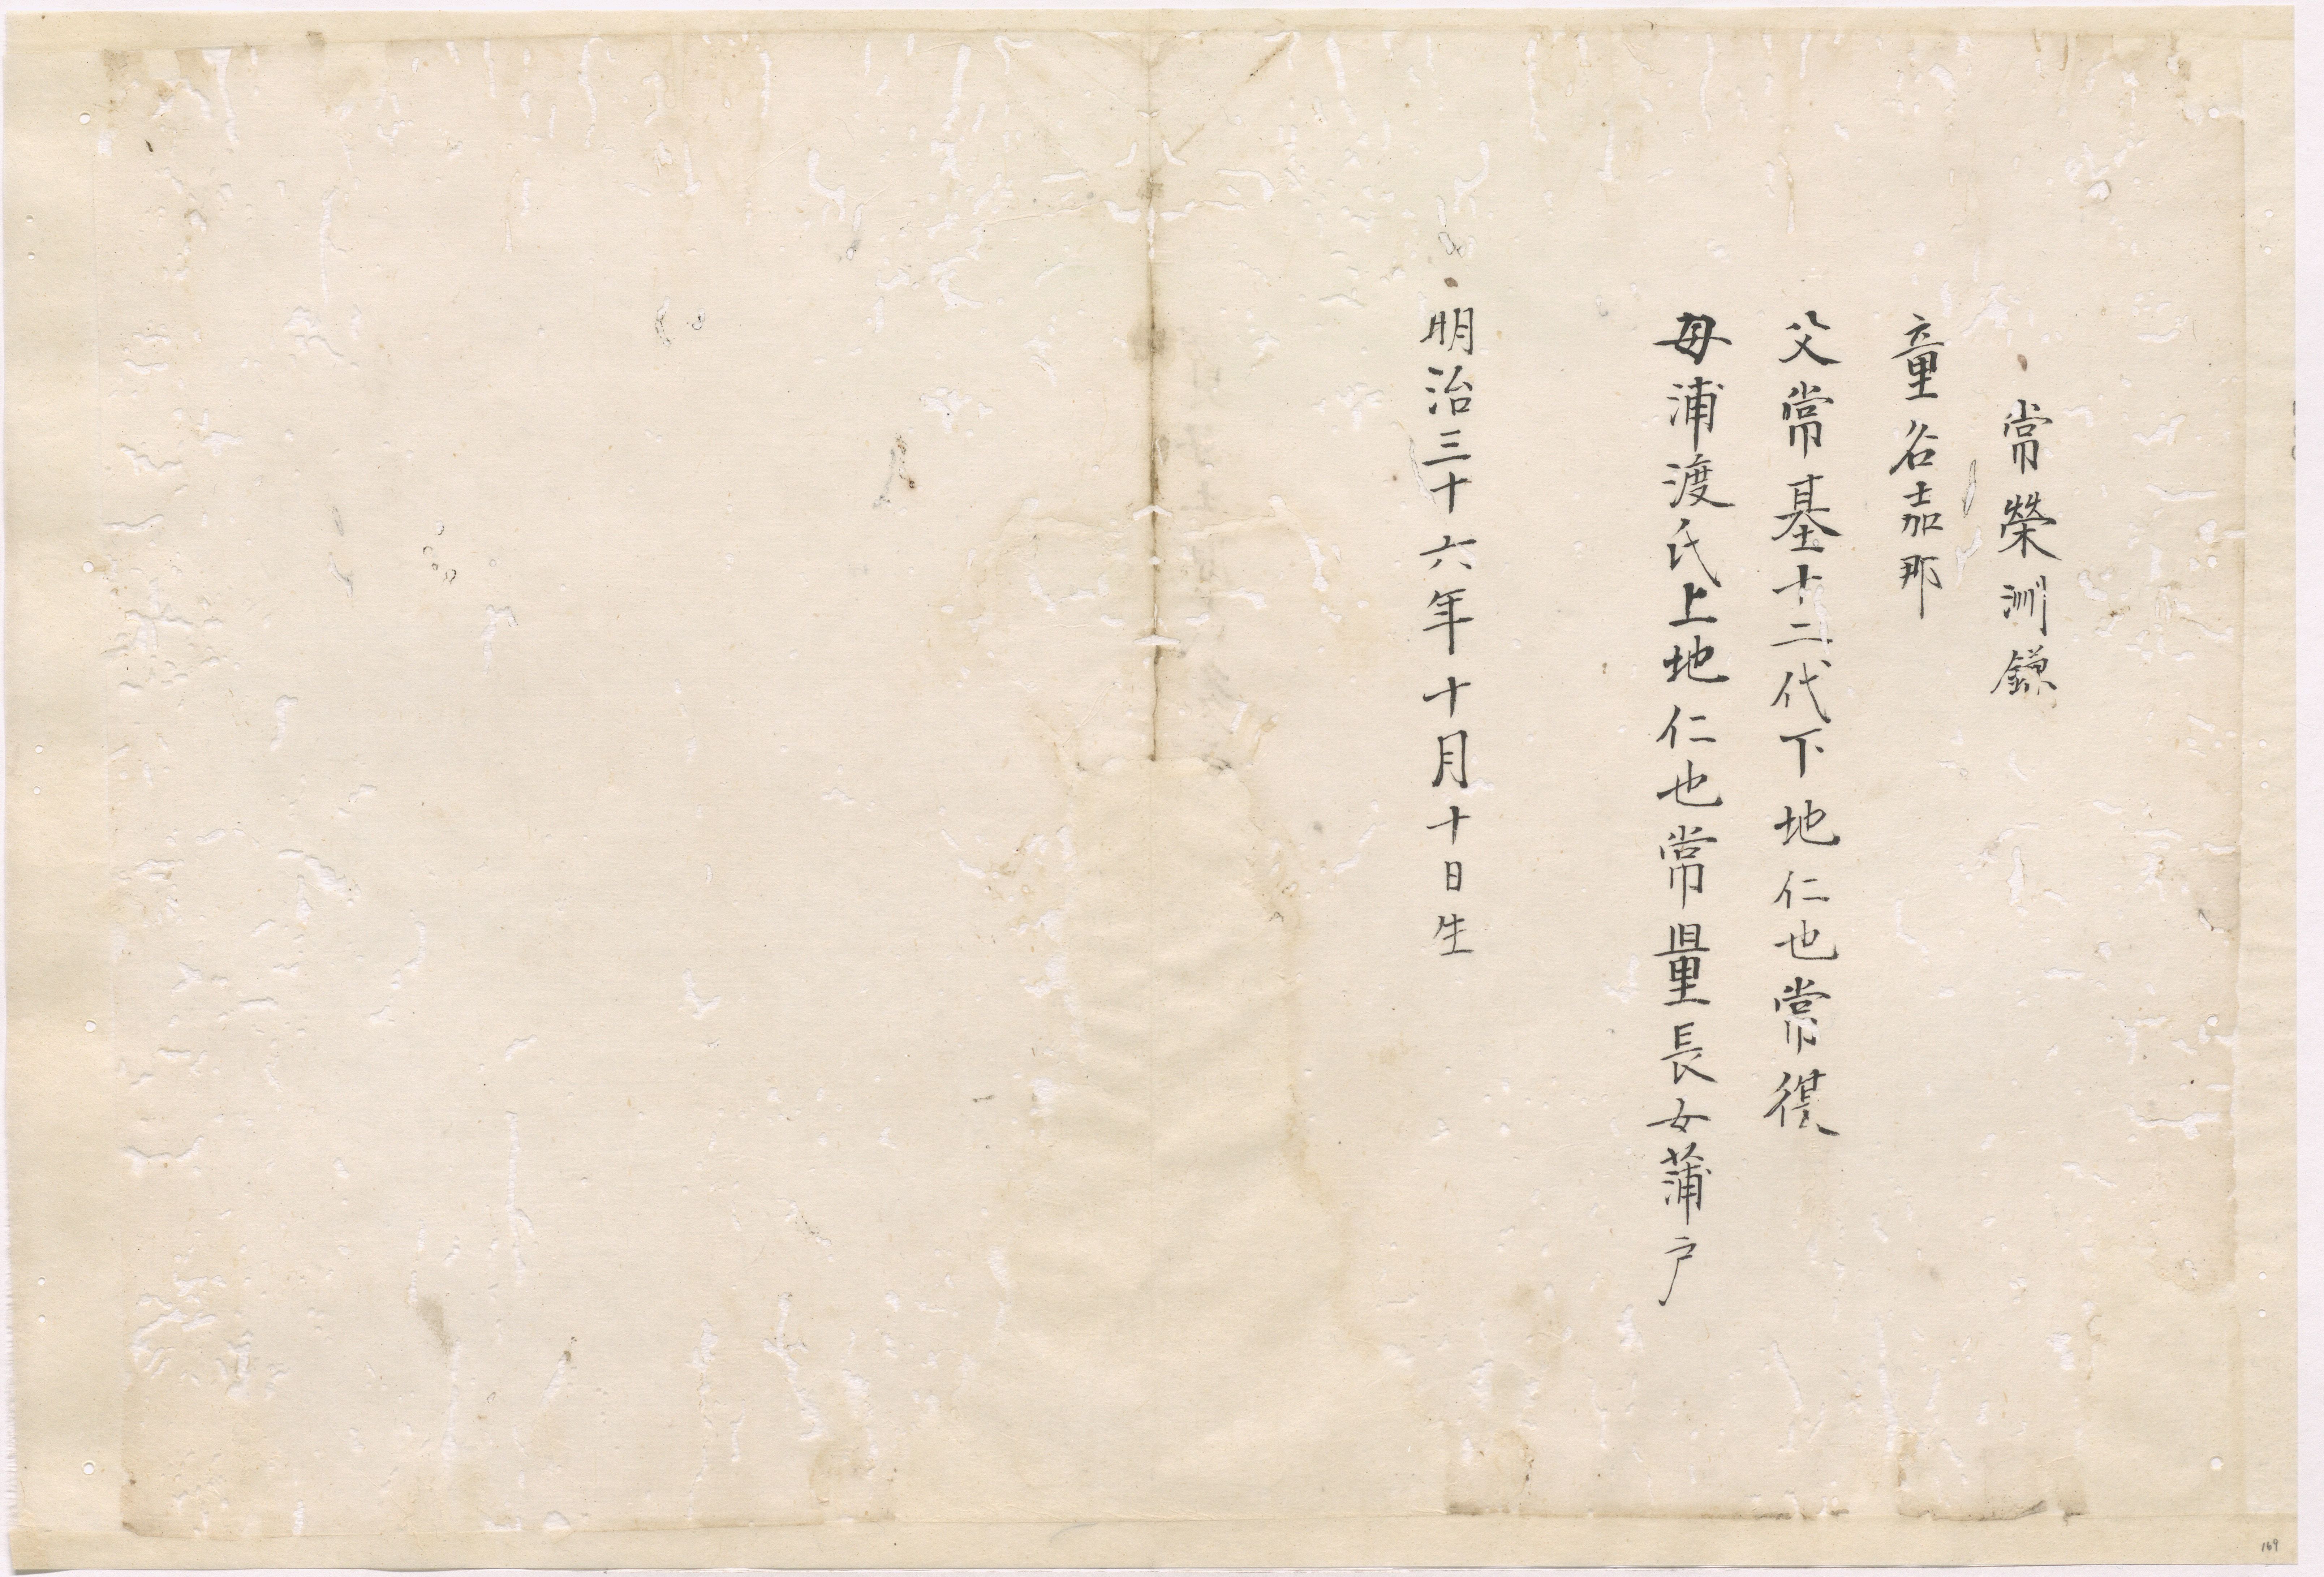 常榮洲鎌
童名嘉那
父常基十二代下地仁也常得
母浦渡氏上地仁也常量長女蒲戸
明治三十六年十月十日生
169